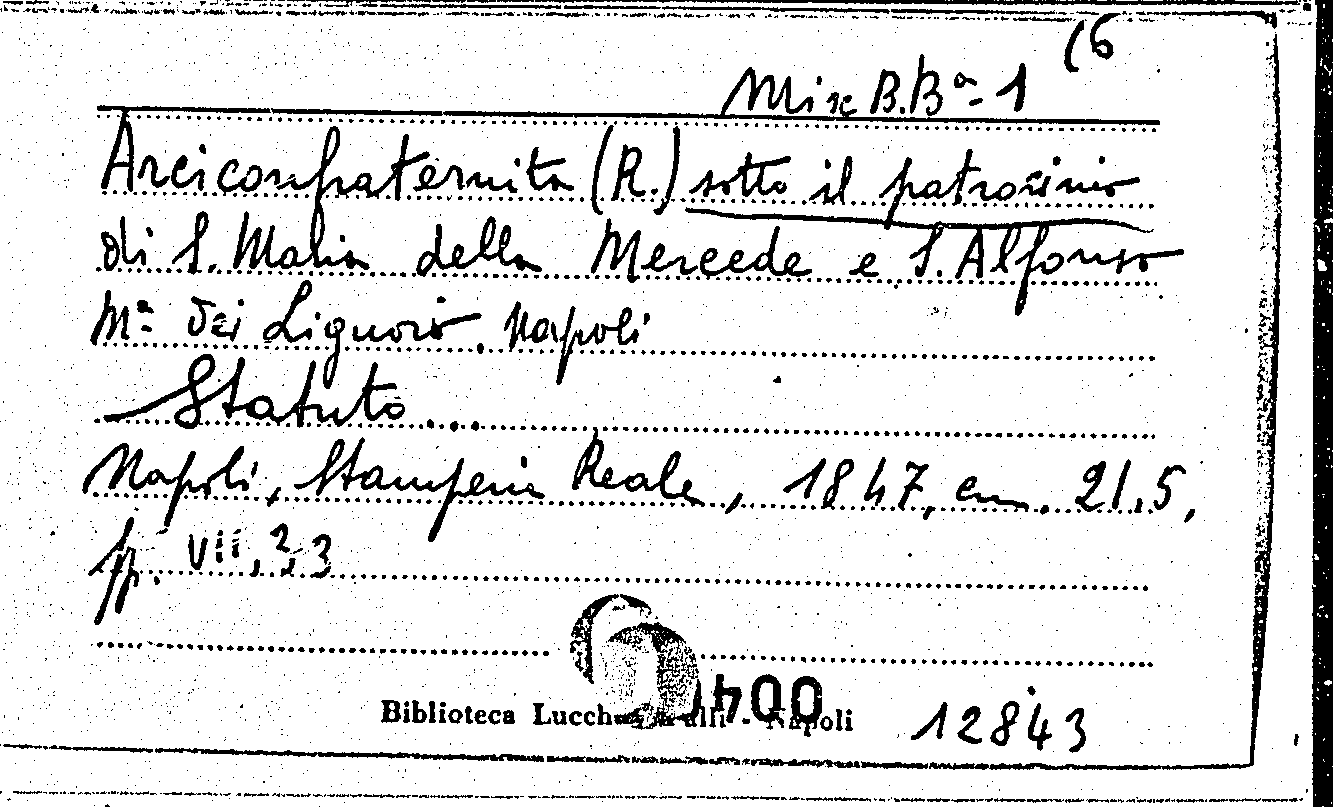 (6
Misc B.Bª-1
Arciconfraternita (R.) sotto il patrocinio
di S. Maria della Mercede e S. Alfonso
Mª dei Liguori. Napoli
Statuto...
Napoli, Stamperia Reale, 1847, cm. 21.5,
pp. VII, 33
Biblioteca - Napoli
12843